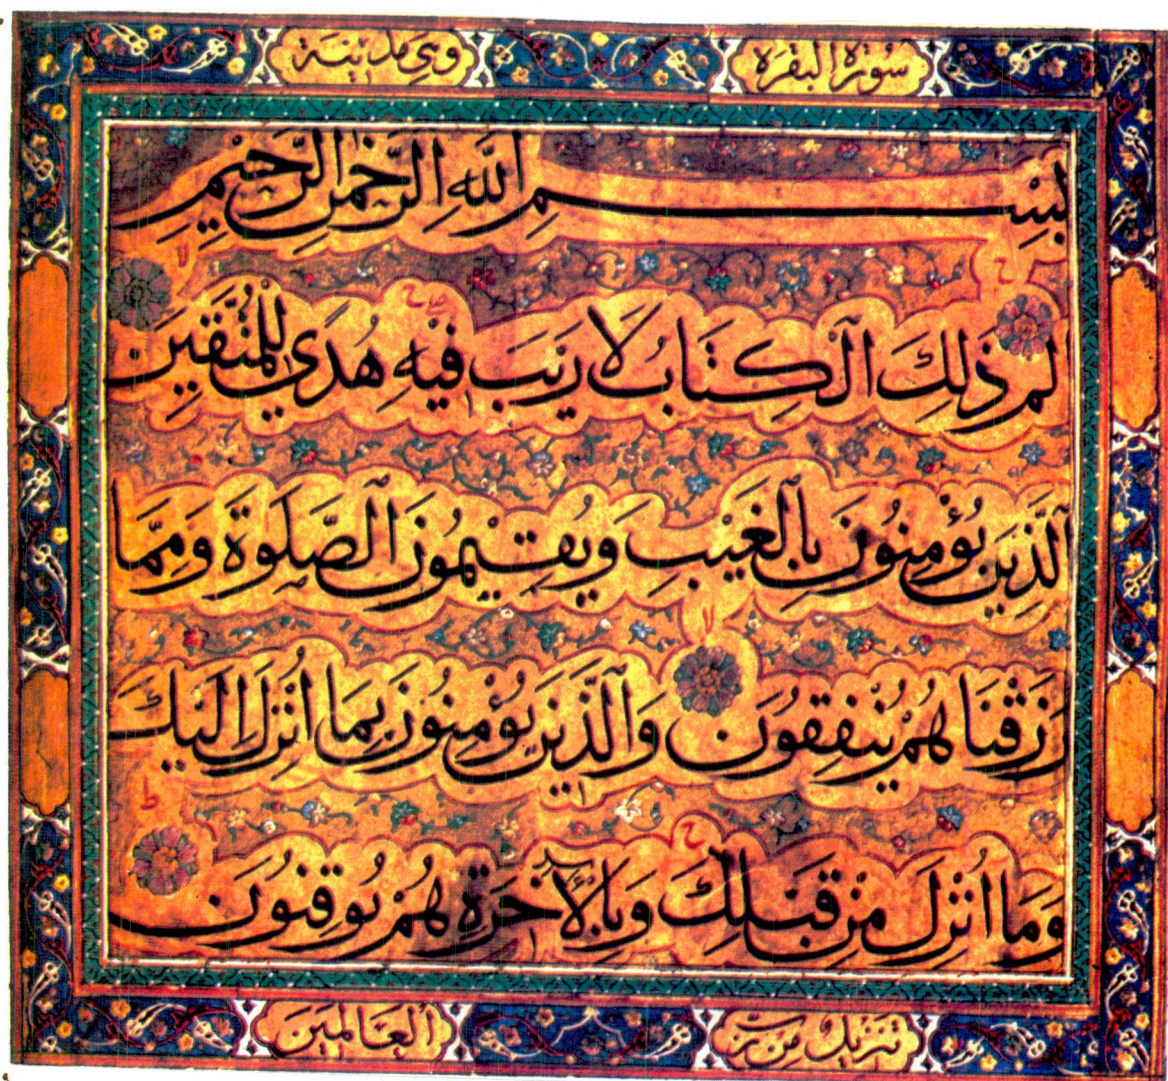 سورة البقرة وهي مدنية
بِسْمِ اللَّهِ الرَّحْمٰنِ الرَّحِيمِ
الم ذٰلِكَ الْكِتَابُ لَا رَيْبَ فِيهِ هُدًى لِلْمُتَّقِينَ
الَّذِينَ يُؤْمِنُونَ بِالْغَيْبِ وَيُقِيمُونَ الصَّلٰوةَ وَمِمَّا
رَزَقْنَاهُمْ يُنْفِقُونَ وَالَّذِينَ يُؤْمِنُونَ بِمَا أُنْزِلَ إِلَيْكَ
وَمَا أُنْزِلَ مِنْ قَبْلِكَ وَبِالْآخِرَةِ هُمْ يُوقِنُونَ
تنزيل من رب العالمين